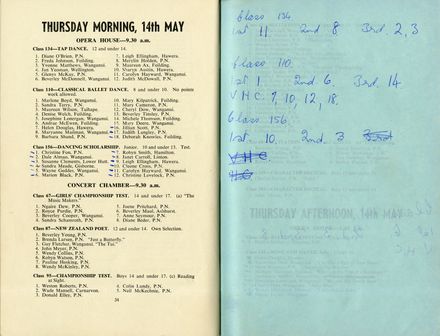 THURSDAY MORNING, 14th MAY
OPERA HOUSE—9.30 a.m.
Class 134—TAP DANCE. 12 and under 14.
1. Diane O'Brien, P.N.
2. Freda Johnson, Feilding.
3. Yvonne Matthews, P.N.
4. Jan Yeoman, Wellington.
5. Glenys McKay, P.N.
6. Beverley McDonnell, Wanganui.
7. Leigh Ellingham, Hawera.
8. Merylin Holden, P.N.
9. Maureen Ax, Feilding.
10. Vianya Austin, Hawera.
11. Carolyn Hayward, Wanganui.
12. Judith McDonald, P.N.
Class 110—CLASSICAL BALLET DANCE. 8 and under 10. No points
work allowed.
1. Marlene Boyd, Wanganui.
2. Sandra Terry, P.N.
3. Maureen Wilson, Taihape.
4. Denise Welch, Feilding.
5. Josephine Lonergan, Wanganui.
6. Andrae McEwen, Feilding.
7. Helen Douglas, Hawera.
8. Marryanne Maloney, Wanganui.
9. Barbara Shand, P.N.
10. Mary Kilpatrick, Feilding.
11. Mary Cameron, P.N.
12. Cheryl Dow, Wanganui.
13. Beverley Tinsley, P.N.
14. Michele Thomson, Feilding.
15. Mary Dawn, Wanganui.
16. Lillian Scott, P.N.
17. Judith Langley, P.N.
18. Deborah Knowles, Feilding.
Class 156—DANCING SCHOLARSHIP. Junior. 10 and under 13. Test.
1. Christine Fox, P.N.
2. Dale Almao, Wanganui.
3. Suzanne Clements, Lower Hutt.
4. Sandra Meade, Gisborne.
5. Wayne Geddes, Wanganui.
6. Marion Black, P.N.
7. Robyn Smith, Hamilton.
8. Janet Carroll, Linton.
9. Leigh Ellingham, Hawera.
10. Cheree Cross, P.N.
11. Carolyn Hayward, Wanganui.
12. Christine Lovelock, P.N.
CONCERT CHAMBER—9.30 a.m.
Class 67—GIRLS' CHAMPIONSHIP TEST. 14 and under 17. (a) "The
Music Makers."
1. Ngaire Dew, P.N.
2. Royce Purdie, P.N.
3. Beverley Cooper, Wanganui.
4. Sandra Schamroth, P.N.
5. Joette Pritchard, P.N.
6. Beverley Maul, Ashhurst.
7. Anne Seymour, P.N.
8. Diane Beder, P.N.
Class 87—NEW ZEALAND POET. 12 and under 14. Own Selection.
1. Beverley Young, P.N.
2. Brenda Larsen, P.N. "Just a Butterfly."
3. Gay Fletcher, Wanganui. "The Tui."
4. John Meyer, P.N.
5. Wendy Collins, P.N.
6. Robyn Watson, P.N.
7. Pauline Hosking, P.N.
8. Wendy McKinley, P.N.
Class 95—CHAMPIONSHIP TEST. Boys 14 and under 17. (c) Reading
at Sight.
1. Weston Roberts, P.N.
2. Wade Mansell, Carnarvon.
3. Donald Elley, P.N.
4. Colin Lundy, P.N.
5. Neil McKechnie, P.N.
34
Class 134
1st 11 2nd 8 3rd. 2, 3
Class 110.
1st 1 2nd 6. 3rd. 14
V H C. 7, 10, 12, 18.
Class 156.
1st. 10. 2nd. 3
V H C
H C